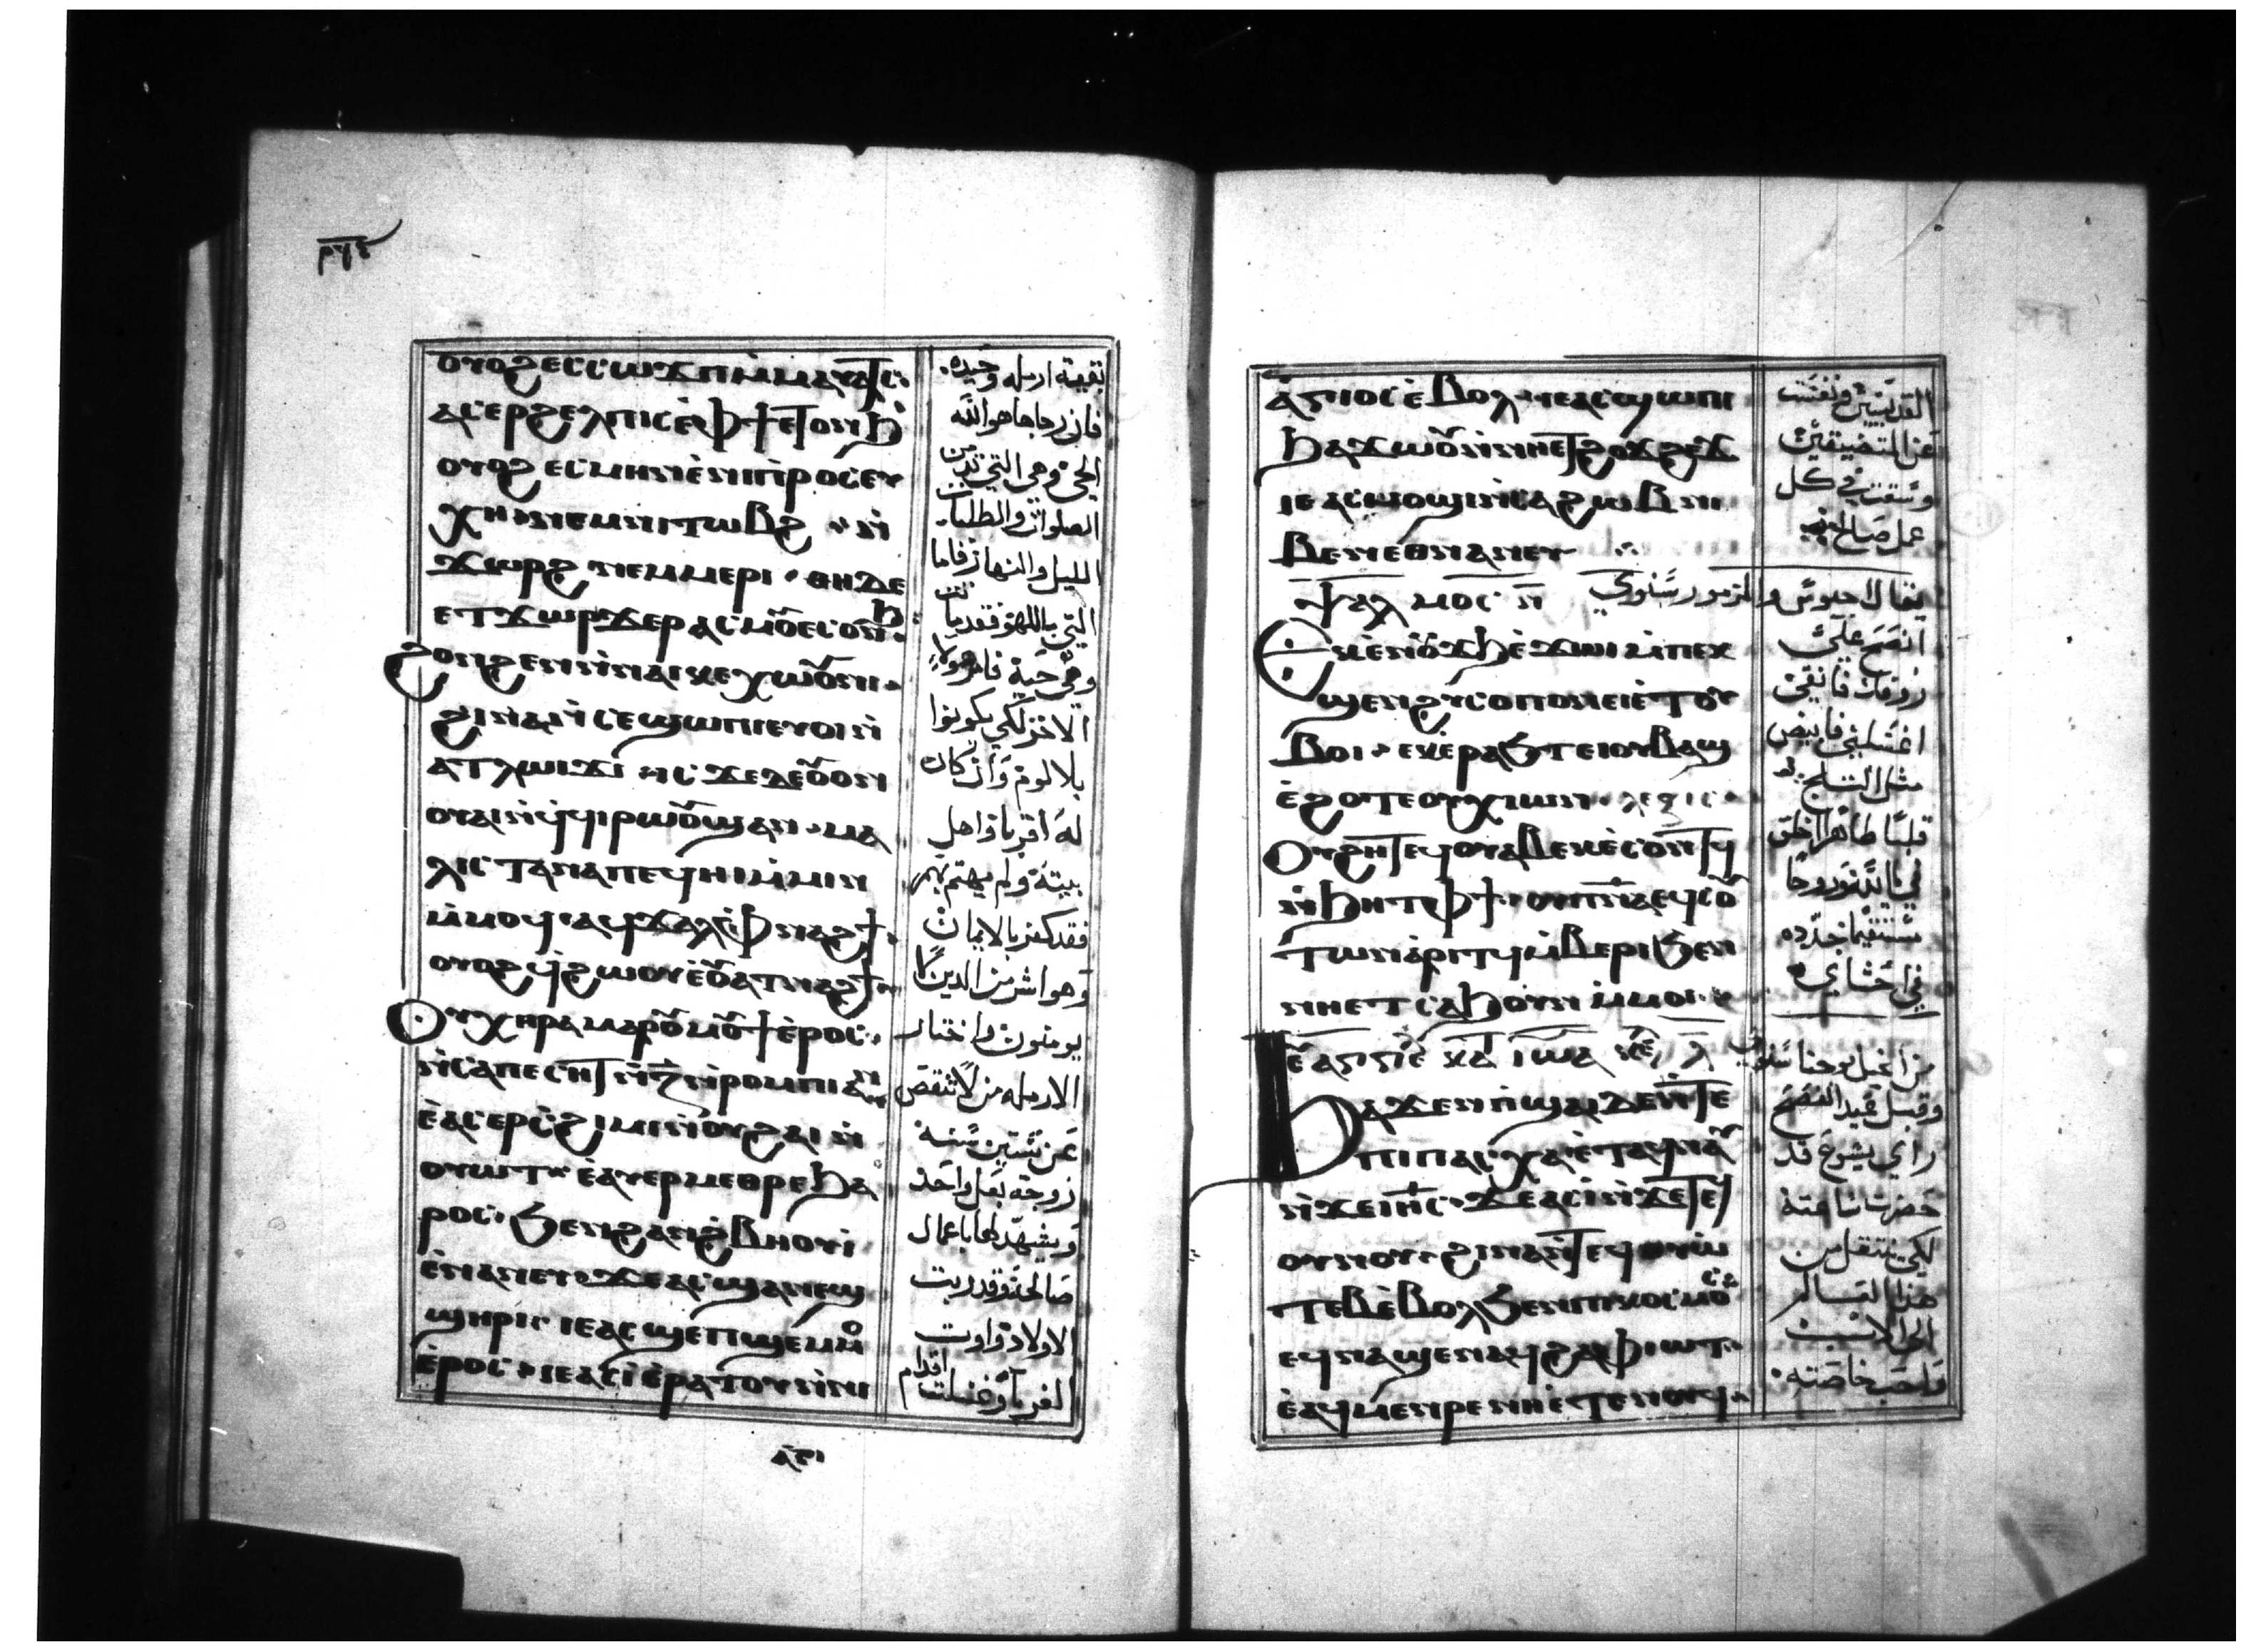 ⲟⲩⲟϩ ⲉⲥⲥⲱϫⲡ ⲙ̀ⲙⲁⲩⲁⲧⲥ
ⲁⲥⲉⲣϩⲉⲗⲡⲓⲥ ⲉ̀ⲫϯ ⲉⲧⲟⲛϧ
ⲟⲩⲟϩ ⲉⲥⲙⲏⲛ ⲉ̀ⲛⲓⲡⲣⲟⲥⲉⲩ
ⲭⲏ ⲛⲉⲙ ⲛⲓⲧⲱⲃϩ ⲛ̀
ϫⲱⲣϩ ⲛⲉⲙ ⲙⲉⲣⲓ ⲑⲏ ⲇⲉ
ϩⲟⲛϩⲉⲛ ⲛ̀ⲛⲁⲓ ⲕⲉⲭⲱⲟⲩⲛⲓ
ϩⲓⲛⲁ ⲛ̀ⲥⲉϣⲱⲡⲓ ⲉⲩⲟⲓ ⲛ̀
ⲁⲧⲗⲱⲓϫⲓ ⲓⲥϫⲉ ⲇⲉ ⲟⲩⲟⲛ
ⲟⲩⲁⲓ ⲛ̀ϥϥⲓⲣⲱⲟⲩϣ ⲁⲛ ⲙⲁ
ⲗⲓⲥⲧⲁ ⲛⲁ ⲡⲉϥⲏⲓ ⲙ̀ⲙⲓⲛ
ⲙ̀ⲙⲟϥ ⲁϥϫⲁⲗ ⲫⲛⲁϩϯ
ⲟⲩⲟϩ ϥϩⲱⲟⲩ ⲉ̀ⲟⲩⲁⲧⲛⲁϩϯ
ⲟⲩⲭⲏⲣⲁ ⲙⲁⲣⲟⲩⲙⲟⲩϯ ⲉ̀ⲣⲟⲥ
ⲛ̀ⲥⲁⲡⲉⲥⲏⲧ ⲛ̀ⲝ̅ ⲛ̀ⲣⲟⲙⲡⲓ ⲁⲛ
ⲉ̀ⲁⲥⲉⲣⲥϩⲓⲙⲓ ⲛ̀ⲟⲩϩⲁⲓ ⲛ̀
ⲟⲩⲱⲧ ⲉ̀ⲩⲉⲣⲙⲉⲑⲣⲉ ϧⲁ
ⲣⲟⲥ ϧⲉⲛ ϩⲁⲛϩⲃⲏⲟⲩⲓ
ⲉ̀ⲛⲁⲛⲉⲩ ϫⲉ ⲁⲥϣⲁⲛⲉϣ
ϣⲏⲣⲓ ⲓⲉ ⲁⲥϣⲉⲡ ϣⲉⲙⲙⲟ
ⲉ̀ⲣⲟⲥ ⲓⲉ ⲁⲥⲓ̀ⲁ ⲣⲁⲧⲟⲩ ⲛ̀ⲛⲓ
ⲁ̀ⲅⲓ
بقيتة ارمله وحيده
فان رجاها هو الله
الحي وهي التي تدمن
الصلوات والطلبات
الليل والنهار فاما
الاخر لكي يكونوا
بلا لوم وان كان
بيته ولم يهتم بهم
فقد كفر بالايمان
يومنون واختار
الارمله من لا تنقص
عن ستين سنه
زوجة بعل واحد
ويشهد لها باعمال
صالحه وقد ربت
الاولاد واوت
الغربا وغسلت اقدام
ⲁ̀ⲅⲓⲟⲥ ⲉ̀ⲃⲟⲗ ⲓⲉ ⲁⲥϣⲱⲡⲓ
ϧⲁϫⲱⲟⲩ ⲛ̀ⲛⲏⲉⲧϩⲟϫϩⲉϫ
ⲓⲉ ⲁⲥⲙⲟϣⲓ ⲛ̀ⲥⲁ ϩⲱⲃ ⲛⲓ
ⲃⲉⲛ ⲉⲑⲛⲁⲛⲉⲩ
ⲯⲁⲗⲙⲟⲥ ⲛ̅
ⲉⲕⲉ̀ⲛⲟⲩϫϧ ⲉ̀ϫⲱⲓ ⲙ̀ⲡⲉⲕ
ϣⲉⲛϩⲩⲥⲟⲡⲟⲛ ⲉⲓⲉ̀ⲧⲟⲩ
ⲃⲟⲓ ⲉⲕⲉ̀ⲣⲁϧⲧ ⲉⲓⲟⲩⲃⲁϣ
ⲉ̀ϩⲟⲧⲉ ⲟⲩⲭⲓⲱⲛ ⲗⲉⲝⲓⲥ
ⲟⲩϩⲏⲧ ⲉϥⲟⲩⲁⲃ ⲉⲕⲉ̀ⲥⲟⲛⲧϥ
ⲛ̀ϧⲏⲧ ⲫϯ ⲟⲩⲡⲛⲁ ⲉϥⲥⲟⲩ
ⲧⲱⲛ ⲁⲣⲓⲧϥ ⲙ̀ⲃⲉⲣⲓ ϧⲉⲛ
ⲛⲏⲉⲧⲥⲁϧⲟⲩⲛ ⲙ̀ⲙⲟⲓ
ϧⲁϫⲉⲛ ⲡ̀ϣⲁⲓ ⲇⲉ ⲛ̀ⲧⲉ
ⲡⲓⲡⲁⲥⲭⲁ ⲉ̀ⲧⲁϥⲛⲁⲩ
ⲛ̀ϫⲉ ⲓⲏⲥ ϫⲉ ⲁⲥⲓ̀ ⲛ̀ϫⲉ ⲧⲉϥ
ⲟⲩⲛⲟⲩ ϩⲓⲛⲁ ⲛ̀ⲧⲉϥⲟⲩⲱ
ⲧⲉⲃ ⲉ̀ⲃⲟⲗ ϧⲉⲛ ⲡⲓⲕⲟⲥⲙⲟⲥ
ⲉϥⲛⲁϣⲉⲛⲁϥ ϩⲁ ⲫⲓⲱⲧ
ⲉ̀ⲁϥⲙⲉⲛⲣⲉ ⲛⲏⲉ̀ⲧⲉⲛⲟⲩϥ
القديسين ونفست
عن المتضيقين
وسعت في كل
عمل صالح
يقال والمزمور سنوي
انضح علي
زوفاك فانقى
اغسلني فابيض
مثل الثلج
قلبا طاهرا اخلق
في يا الله وروحا
مستقيما جدده
في احشاي
من انجيل يوحنا سنوي
وقبل عيد الفصح
راى يسوع قد
حضرت ساعته
لكي ينتقل من
هذا العالم
الى الاب
واحب خاصته